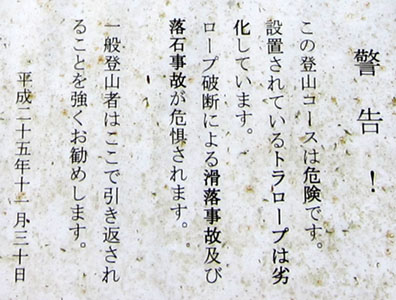 警告！
この登山コースは危険です。
設置されているトラロープは劣
化しています。
ロープ破断による滑落事故及び
落石事故が危惧されます。
一般登山者はここで引き返され
ることを強くお勧めします。
平成二十五年十一月三十日